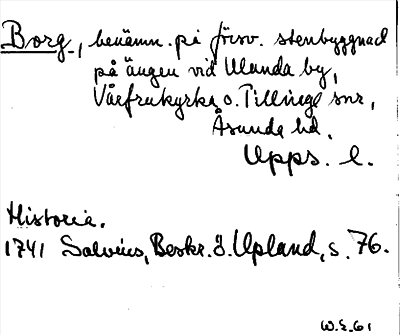 Borg, benämn. på försv. stenbyggnad
på ängen vid Ulunda by,
Vårfrukyrka o. Tillinge snr,
Åsunda hd.
Upps. l.
Historia.
1741 Salvius, Beskr. ö. Upland, s. 76.
W.E. 61